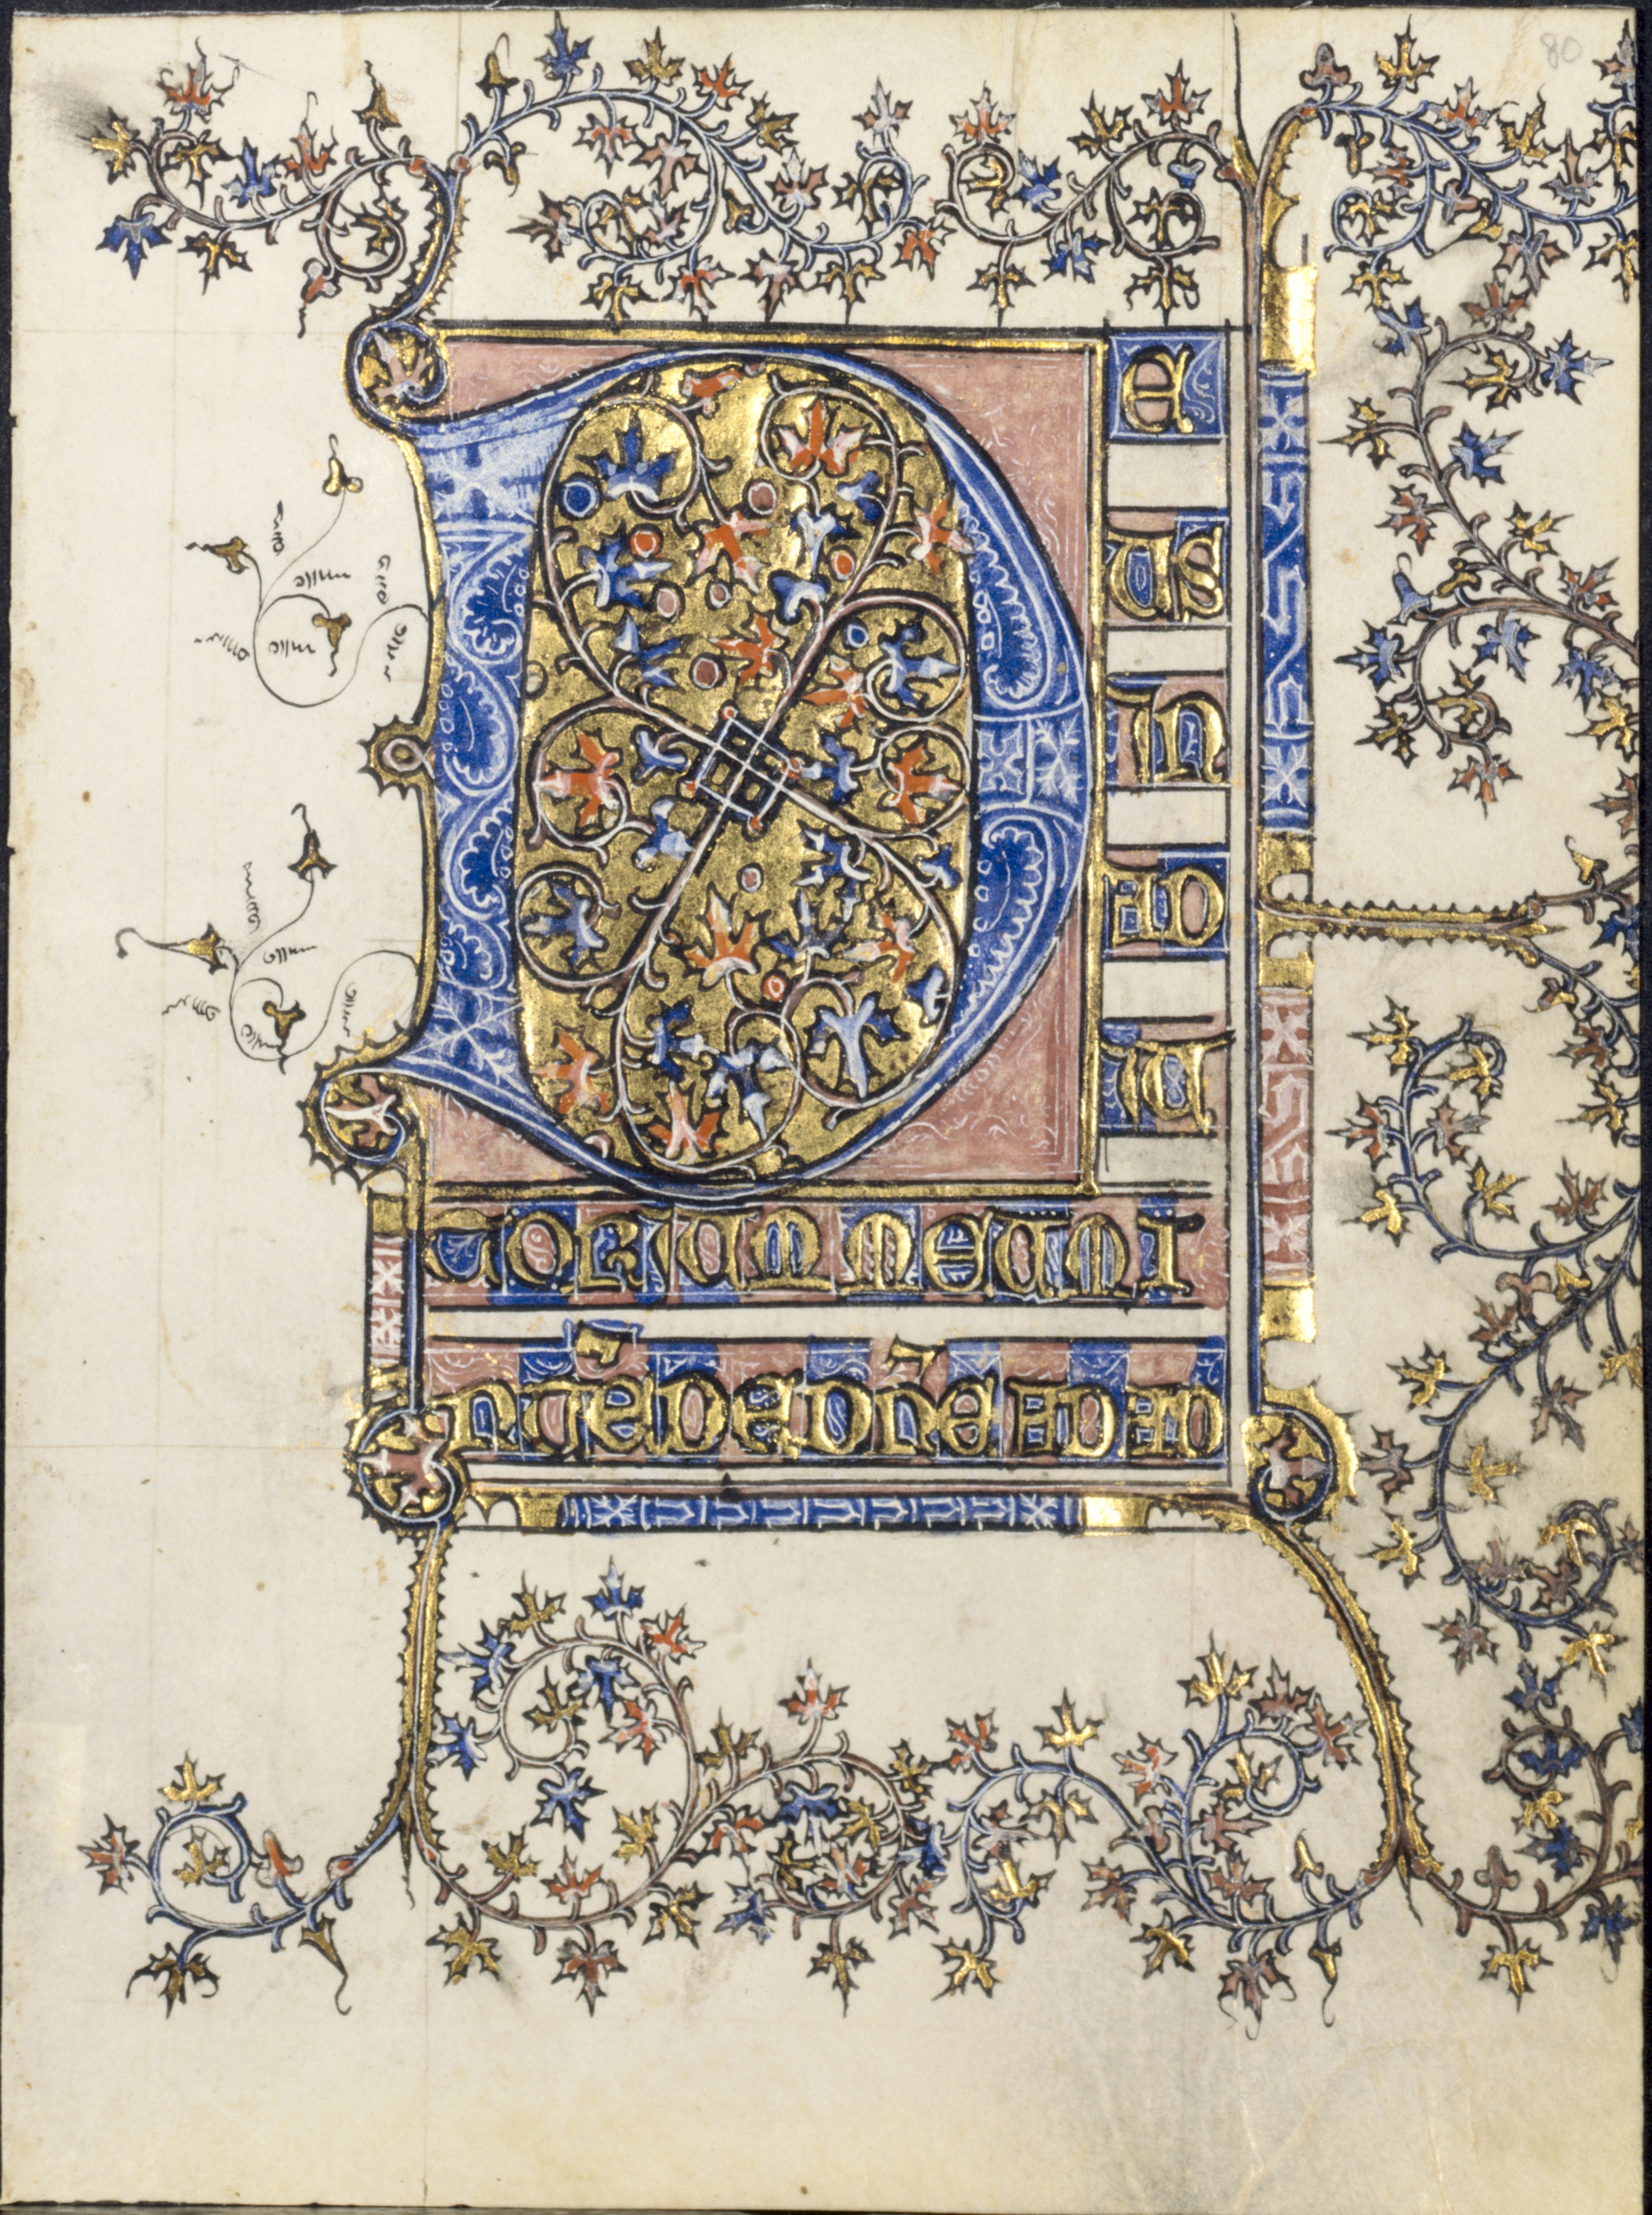 80
D
E
US
IN
AD
IU
TORIUM MEUM I
NTĒDE DÑE AD AD